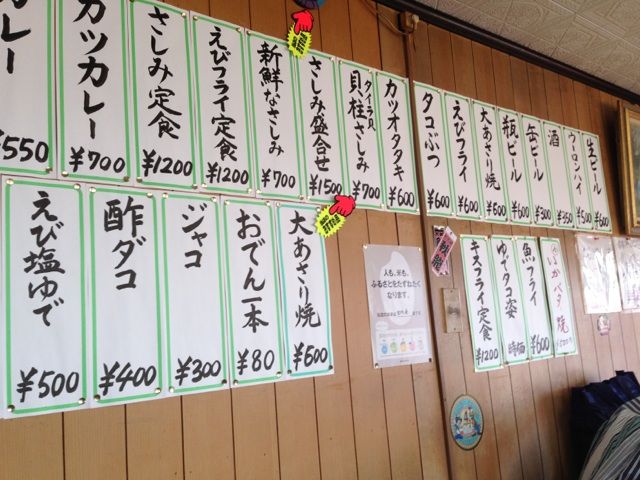 カレー
¥550
カツカレー
¥700
さしみ定食
¥1200
えびフライ定食
¥1200
新鮮なさしみ
¥700
さしみ盛合せ
¥1500
タイラ貝
貝柱さしみ
¥700
カツオタタキ
¥600
タコぶつ
¥600
えびフライ
¥600
大あさり焼
¥500
瓶ビール
¥600
缶ビール
¥300
酒
¥350
ウーロンハイ
¥500
生ビール
¥600
えび塩ゆで
¥500
酢ダコ
¥400
ジャコ
¥300
おでん一本
¥80
大あさり焼
¥500
人も、米も、
ふるさとをたずねたく
なります。
キスフライ定食
¥1200
ゆでタコ姿
時価
魚フライ
¥600
いかバター焼
¥500